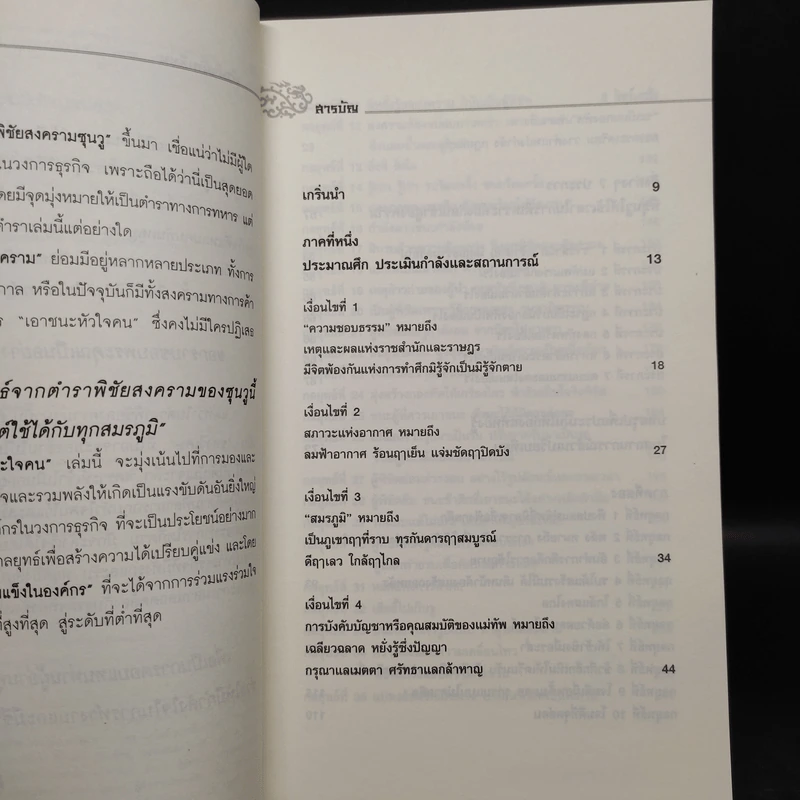 พิชัยสงครามซุนวู" ขึ้นมา เชื่อแน่ว่าไม่มีผู้ใด
นวงการธุรกิจ เพราะถือได้ว่านี่เป็นสุดยอด
ดยมีจุดมุ่งหมายให้เป็นตำราทางการทหาร แต่
ตำราเล่มนี้แต่อย่างใด
คราม" ย่อมมีอยู่หลากหลายประเภท ทั้งการ
กาล หรือในปัจจุบันก็มีทั้งสงครามทางการค้า
ร "เอาชนะหัวใจคน" ซึ่งคงไม่มีใครปฏิเสธ
ธ์จากตำราพิชัยสงครามของซุนวูนี้
ต์ใช้ได้กับทุกสมรภูมิ"
ะใจคน" เล่มนี้ จะมุ่งเน้นไปที่การมองและ
จและรวมพลังให้เกิดเป็นแรงขับดันอันยิ่งใหญ่
กรในวงการธุรกิจ ที่จะเป็นประโยชน์อย่างมาก
กลยุทธ์เพื่อสร้างความได้เปรียบคู่แข่ง และโดย
แข็งในองค์กร" ที่จะได้จากการร่วมแรงร่วมใจ
ที่สูงที่สุด สู่ระดับที่ต่ำที่สุด
สารบัญ
เกริ่นนำ 9
ภาคที่หนึ่ง
ประมาณศึก ประเมินกำลังและสถานการณ์ 13
เงื่อนไขที่ 1
"ความชอบธรรม" หมายถึง
เหตุและผลแห่งราชสำนักและราษฎร
มีจิตพ้องกันแห่งการทำศึกมิรู้จักเป็นมิรู้จักตาย 18
เงื่อนไขที่ 2
สภาวะแห่งอากาศ หมายถึง
ลมฟ้าอากาศ ร้อนฤๅเย็น แจ่มชัดฤๅปิดบัง 27
เงื่อนไขที่ 3
"สมรภูมิ" หมายถึง
เป็นภูเขาฤๅที่ราบ ทุรกันดารฤๅสมบูรณ์
ดีฤๅเลว ใกล้ฤๅไกล 34
เงื่อนไขที่ 4
การบังคับบัญชาหรือคุณสมบัติของแม่ทัพ หมายถึง
เฉลียวฉลาด หยั่งรู้ซึ่งปัญญา
กรุณาแลเมตตา ศรัทธาแลกล้าหาญ 44